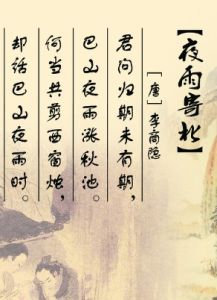 【夜雨寄北】
［唐］李商隐
君问归期未有期，
巴山夜雨涨秋池。
何当共剪西窗烛，
却话巴山夜雨时。